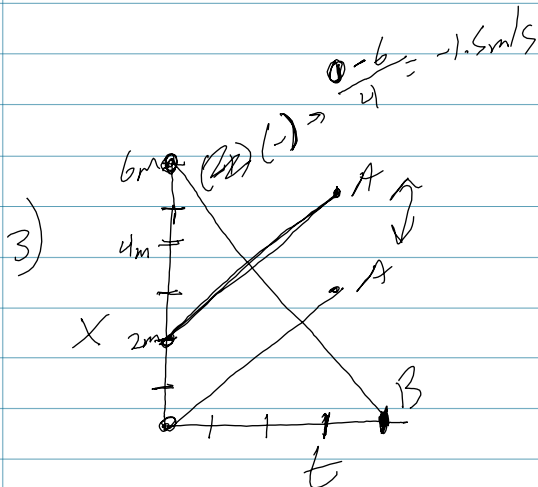 0 - 6 / 4 = -1.5m/s
6m (-) →
A
3) 4m
A
X 2m
B
t